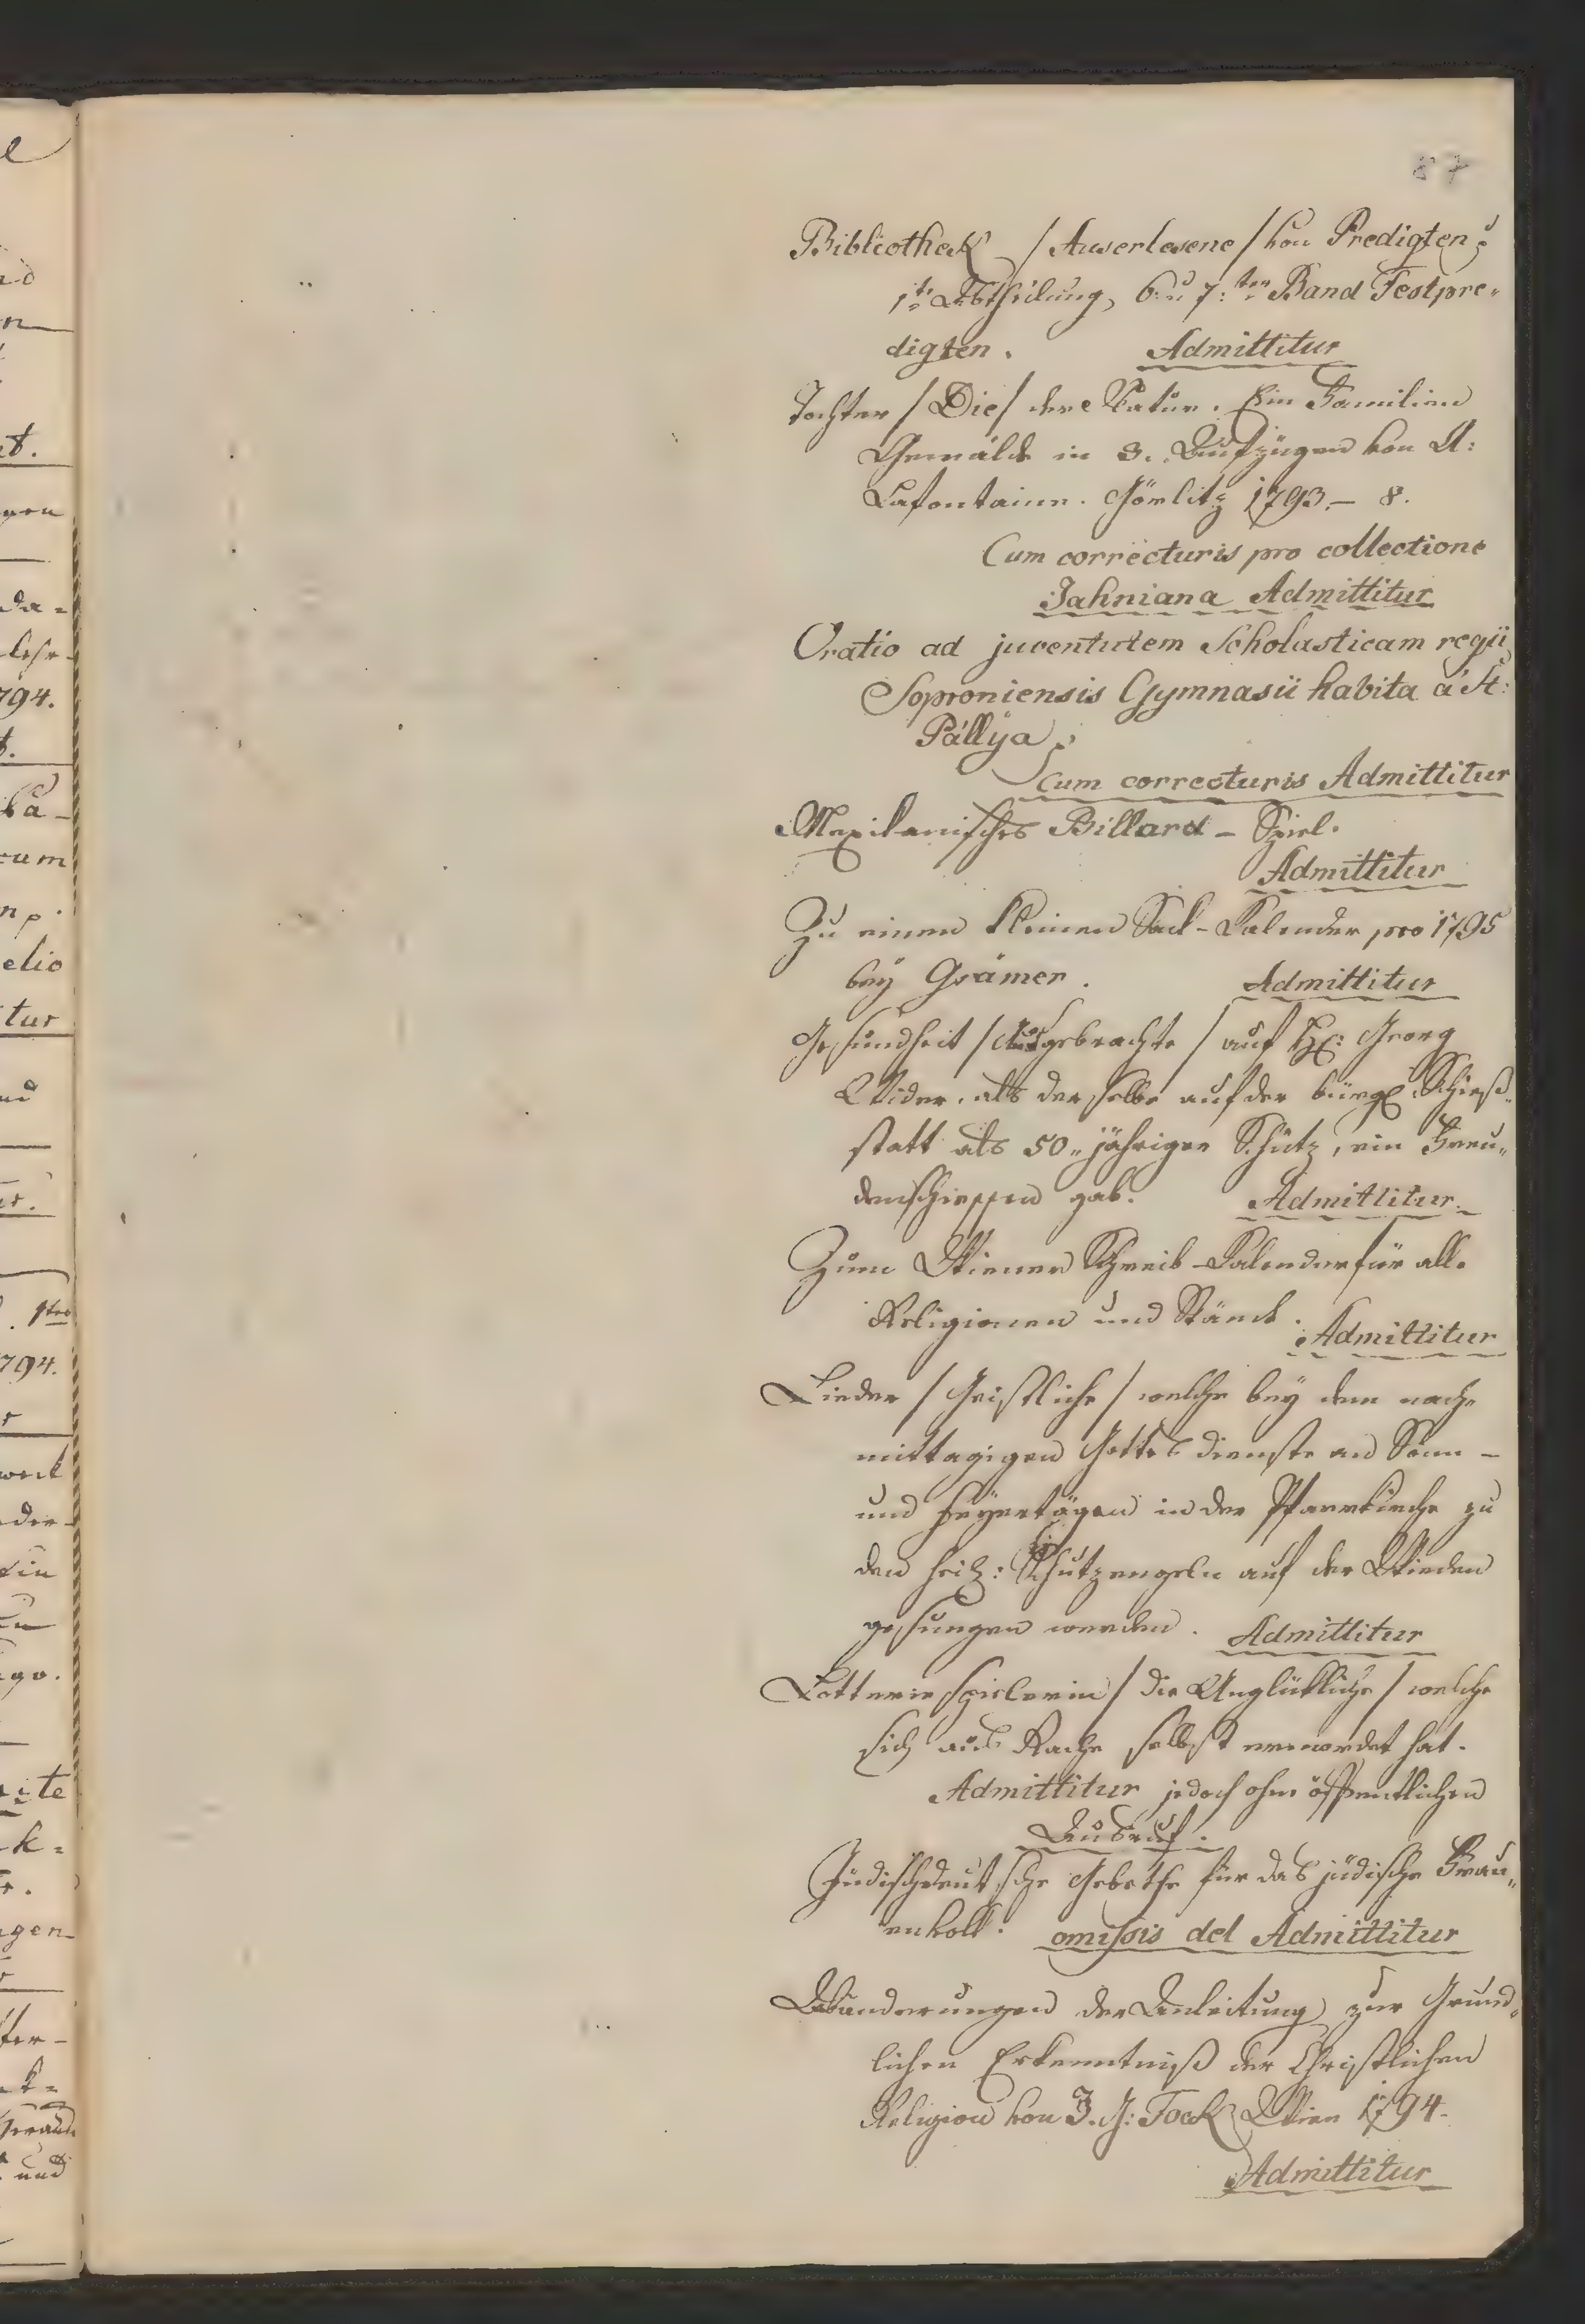 87
Bibliothek /Auserlesene/ von Predigten
1te Abtheilung, 6: u 7:ten Band Festpre-
digten. Admittitur
Tochter /Die/ der Natur. Ein Familien
Gemälde in 3. Aufzügen von A:
Lafontaine. Görlitz 1793. – 8.
Cum correcturis pro collectione
Jahniana Admittitur
Oratio ad juventutem Scholasticam regii
Soproniensis Gymnasii habita a St:
Pállya.
Cum correcturis Admittitur
Mexikanisches Billard – Spiel.
Admittitur
Zu einen kleinen Sack-Kalender pro 1795
bey Grämer. Admittitur
Gesundheit /Ausgebrachte/ auf H: Georg
Wider, als derselbe auf der bürgl Schieß-
statt als 50„jähriger Schütz, ein Freu„
denschiessen gab. Admittitur.
Zum Wiener Schreib-Kalender für alle
Religionen und Stände. Admittitur
Lieder /Geistliche/ welche bey dem nach-
mittagigen Gottesdienste an Sonn –
und Feyertägen in der Pfarrkirche zu
den heil: Schutzengeln auf der Wieden
gesungen werden. Admittitur
Lotteriespielerin /die Unglückliche/ welche
sich aus Rache selbst ermordet hat.
Admittitur jedoch ohne öffentlichen
Ausruf.
Jüdischdeutsche Gebethe für das jüdische Frau„
envolk. omissis del Admittitur
Abänderungen der Anleitung zur Gründ„
lichen Erkenntniß der Christlichen
Religion von J. G: Fock Wien 1794.
Admittitur